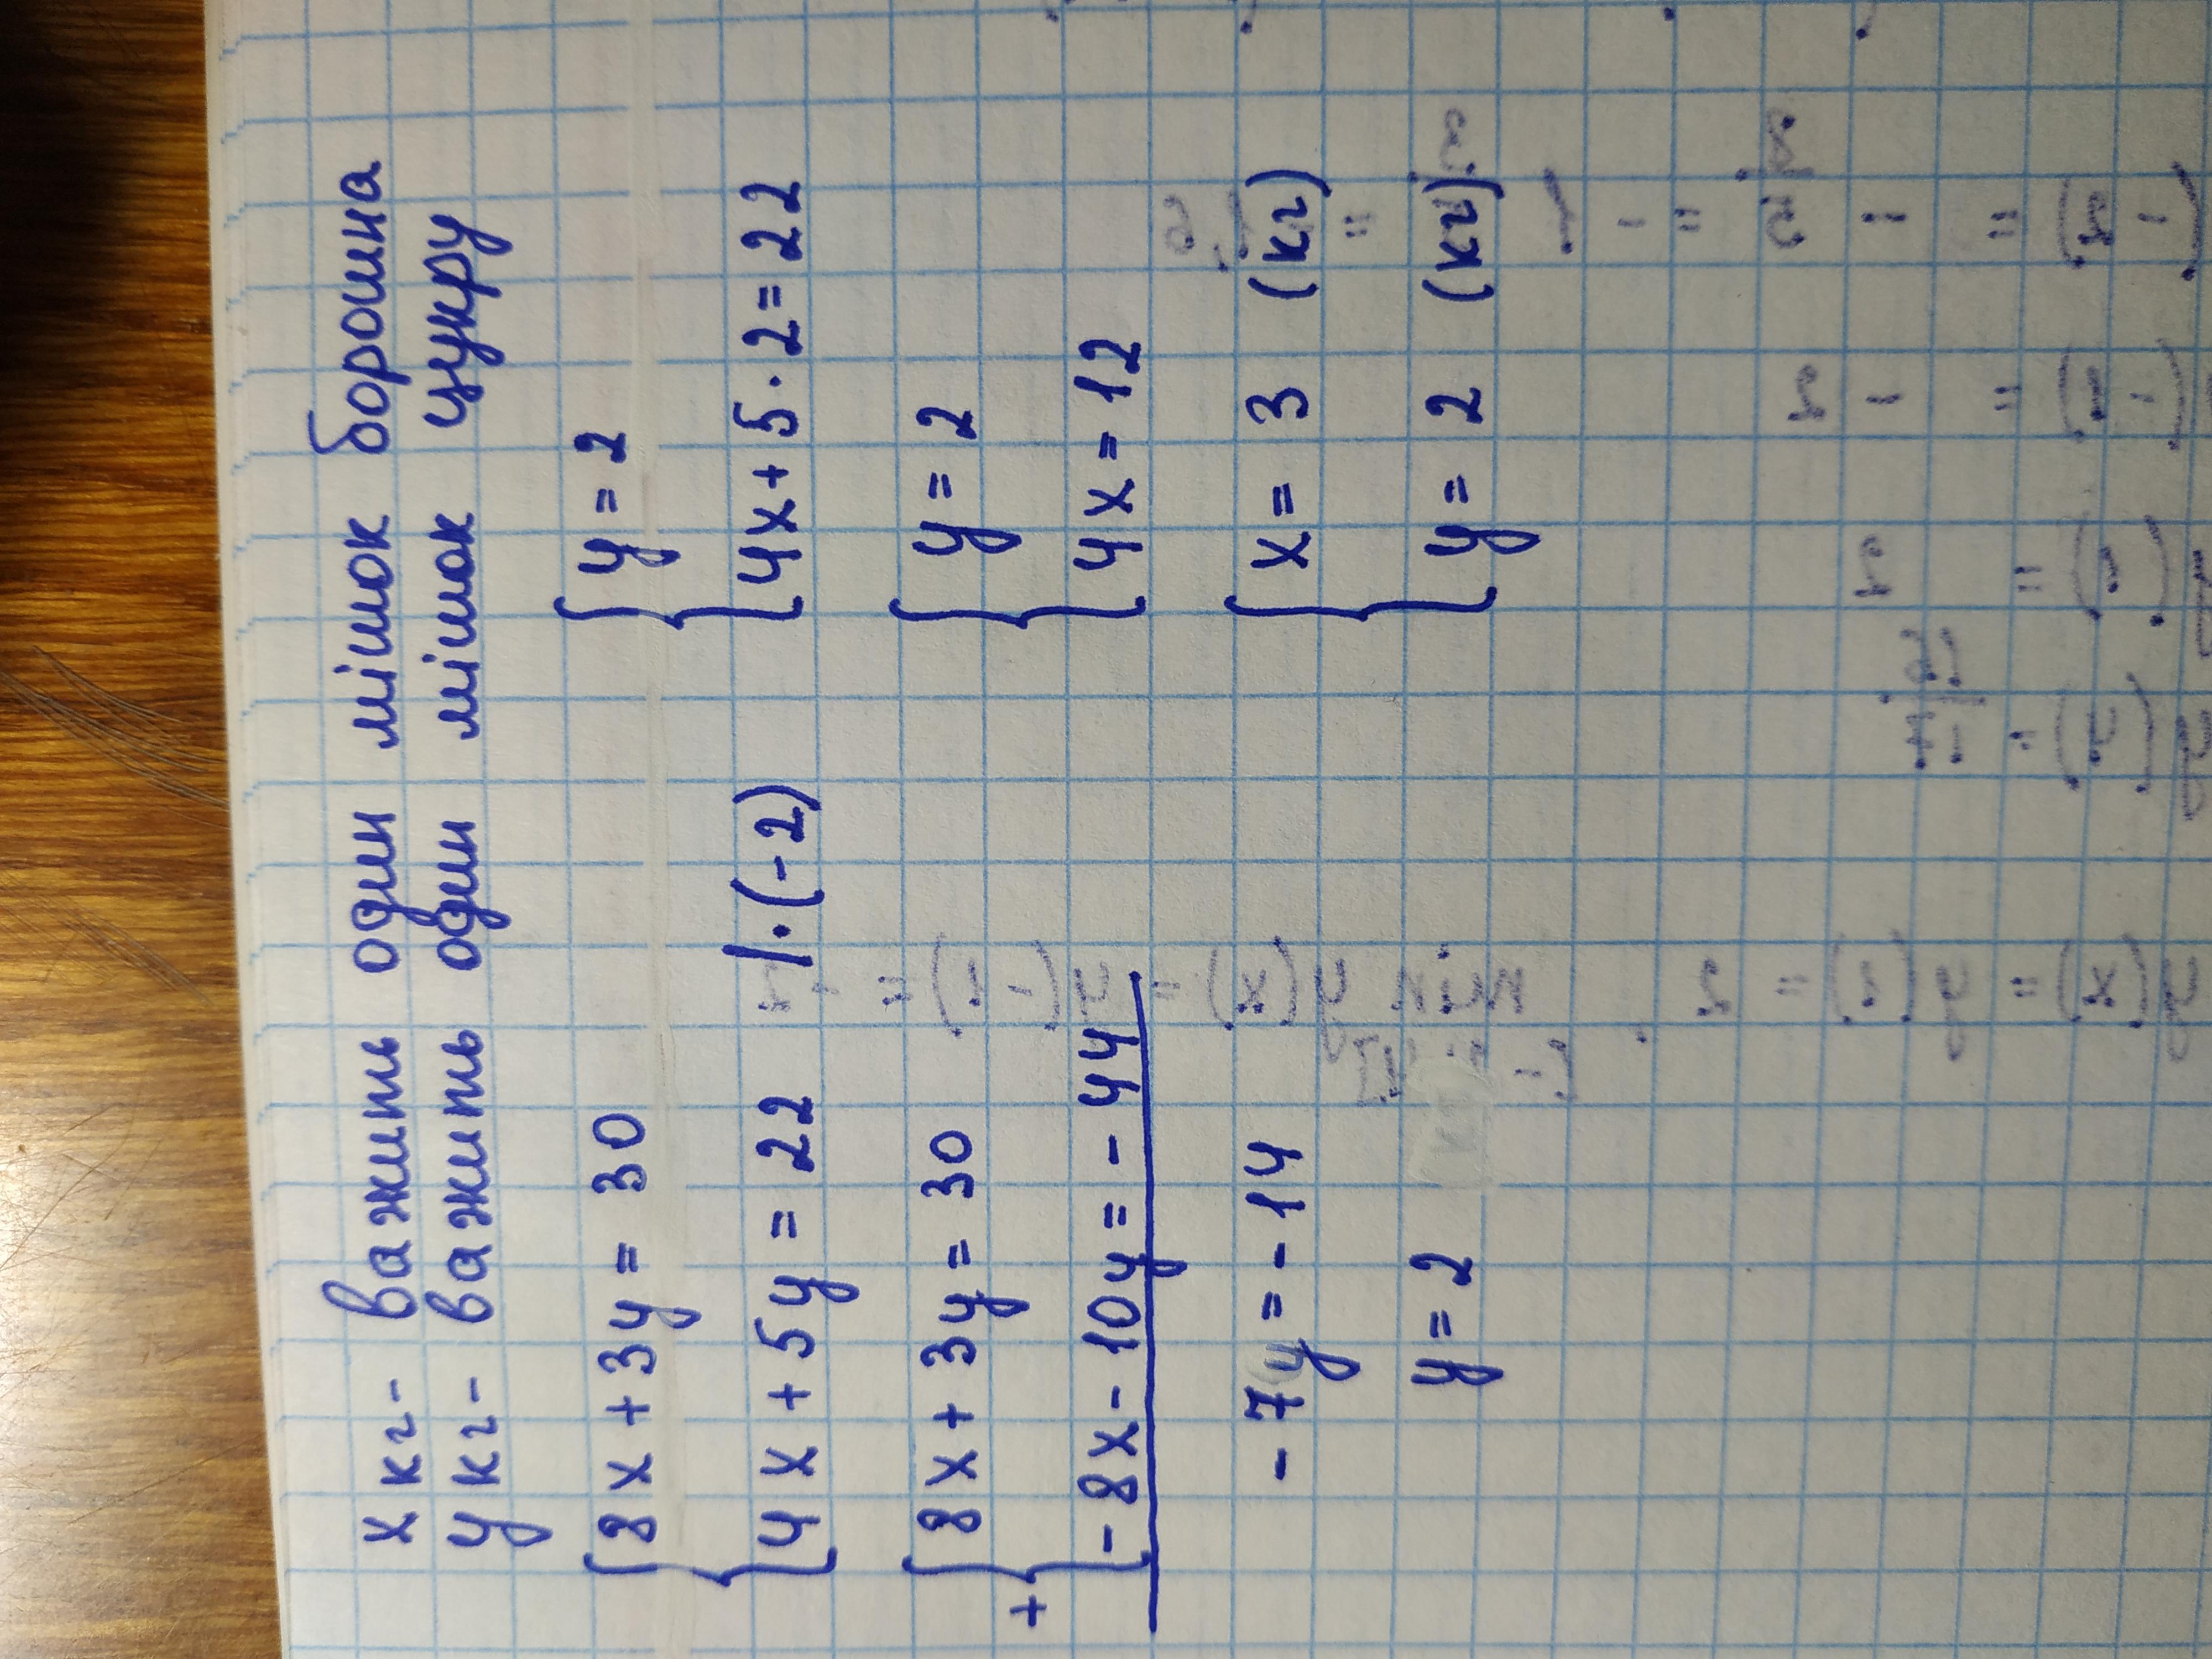 х кг - важить один мішок борошна
у кг - важить один мішок цукру
{8х + 3у = 30
{4х + 5у = 22 |·(-2)
+{8х + 3у = 30
{-8х - 10у = -44
-7у = -14
у = 2
{у = 2
{4х + 5·2 = 22
{у = 2
{4х = 12
{х = 3 (кг)
{у = 2 (кг)